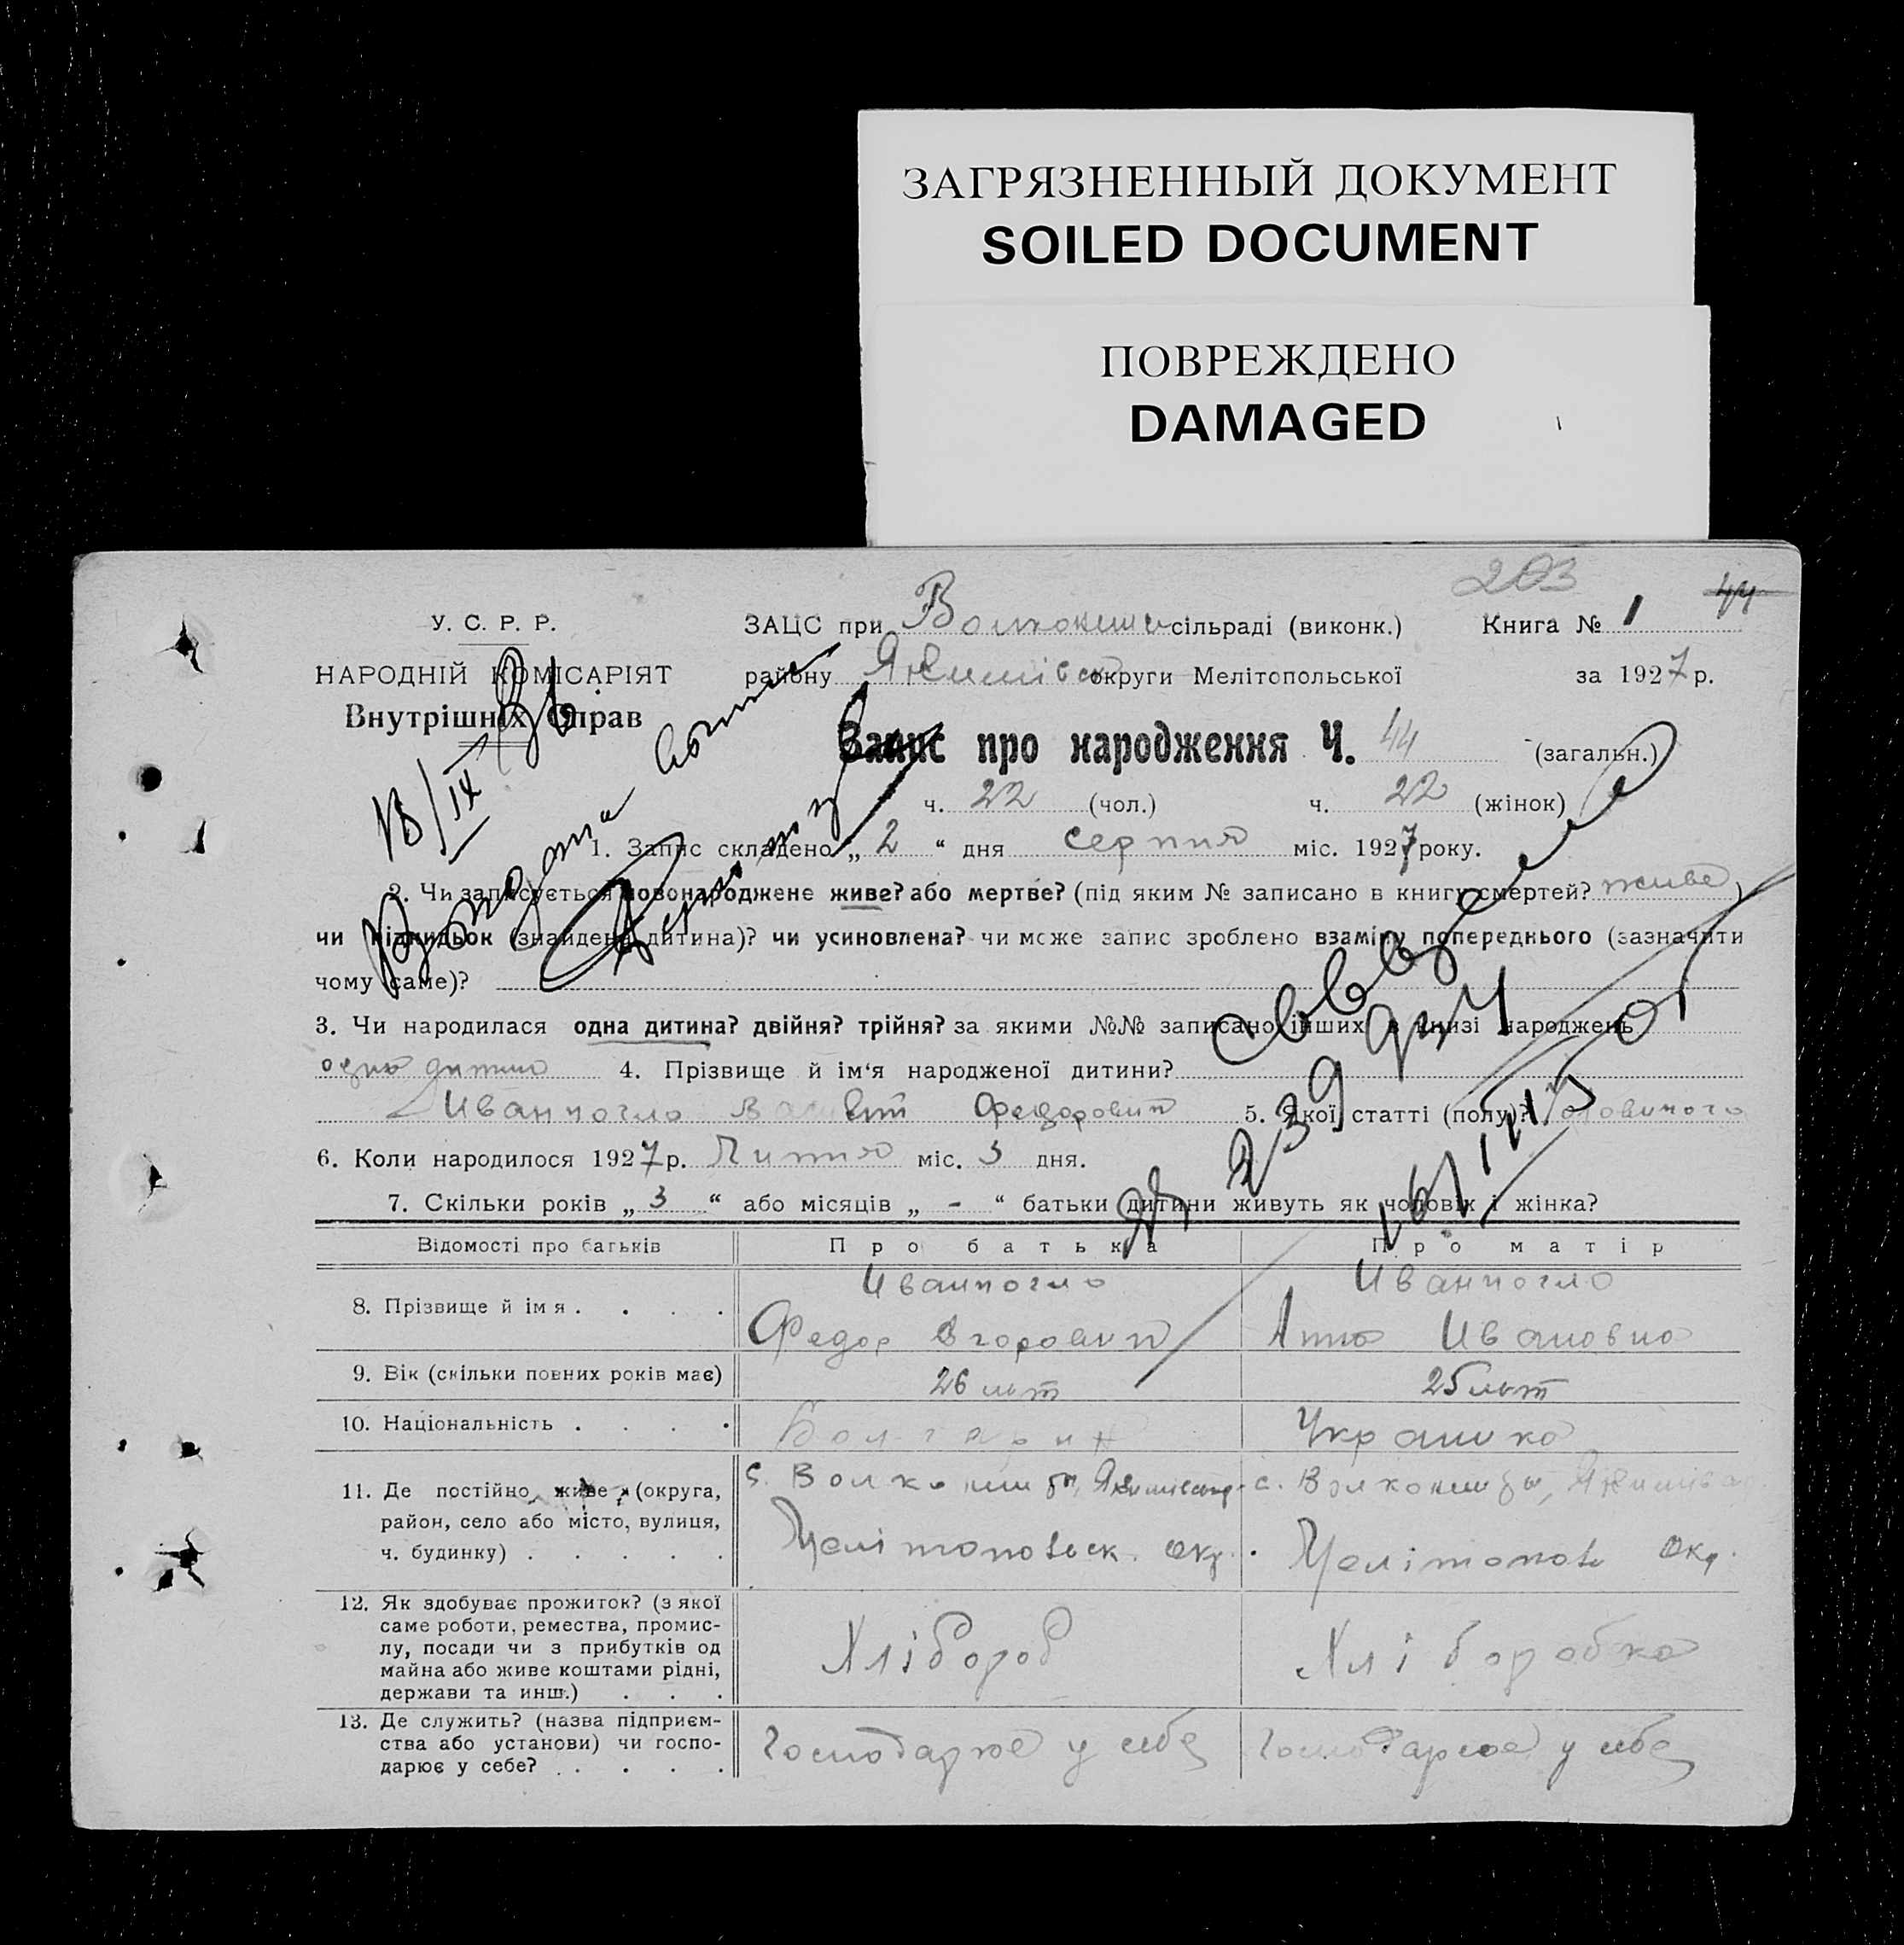 ЗАГРЯЗНЕННЫЙ ДОКУМЕНТ
SOILED DOCUMENT
ПОВРЕЖДЕНО
DAMAGED
203
44
У. С. Р. Р.
НАРОДНІЙ КОМІСАРІЯТ
Внутрішніх Справ
ЗАЦС при сільраді (виконк.) Книга № 1
району округи Мелітопольської за 1927 р.
Запис про народження Ч. 44 (загальн.)
ч. 22 (чол.) ч. 22 (жінок)
18/IX
1. Запис складено „ 2 “ дня серпня міс. 1927 року.
2. Чи записується новонароджене живе? або мертве? (під яким № записано в книгу смертей? живе)
чи підкидьок (знайдена дитина)? чи усиновлена? чи може запис зроблено взамін попереднього (зазначити
чому саме)?
3. Чи народилася одна дитина? двійня? трійня? за якими №№ записано інших в книзі народжень
одна дитина 4. Прізвище й ім'я народженої дитини?
Иванчогло Федорович 5. Якої статті (полу)?
6. Коли народилося 1927 р. Липня міс. 3 дня.
7. Скільки років „ 3 “ або місяців „ - “ батьки дитини живуть як чоловік і жінка?
Відомості про батьків Про батька Про матір
8. Прізвище й імя . . . . Иванчогло Федор Егорович Иванчогло Анна Ивановна
9. Вік (скільки повних років має) 26 лет 25 лет
10. Національність . . . . Болгарин Украинка
11. Де постійно живе (округа,
район, село або місто, вулиця,
ч. будинку) . . . . .
с. Мелітопольск. окр. с. Мелітополь окр.
12. Як здобуває прожиток? (з якої
саме роботи, ремества, промис-
лу, посади чи з прибутків од
майна або живе коштами рідні,
держави та инш.) . . .
Хлібороб Хліборобка
13. Де служить? (назва підприєм-
ства або установи) чи госпо-
дарює у себе? . . . . .
Господарює у себе Господарює у себе